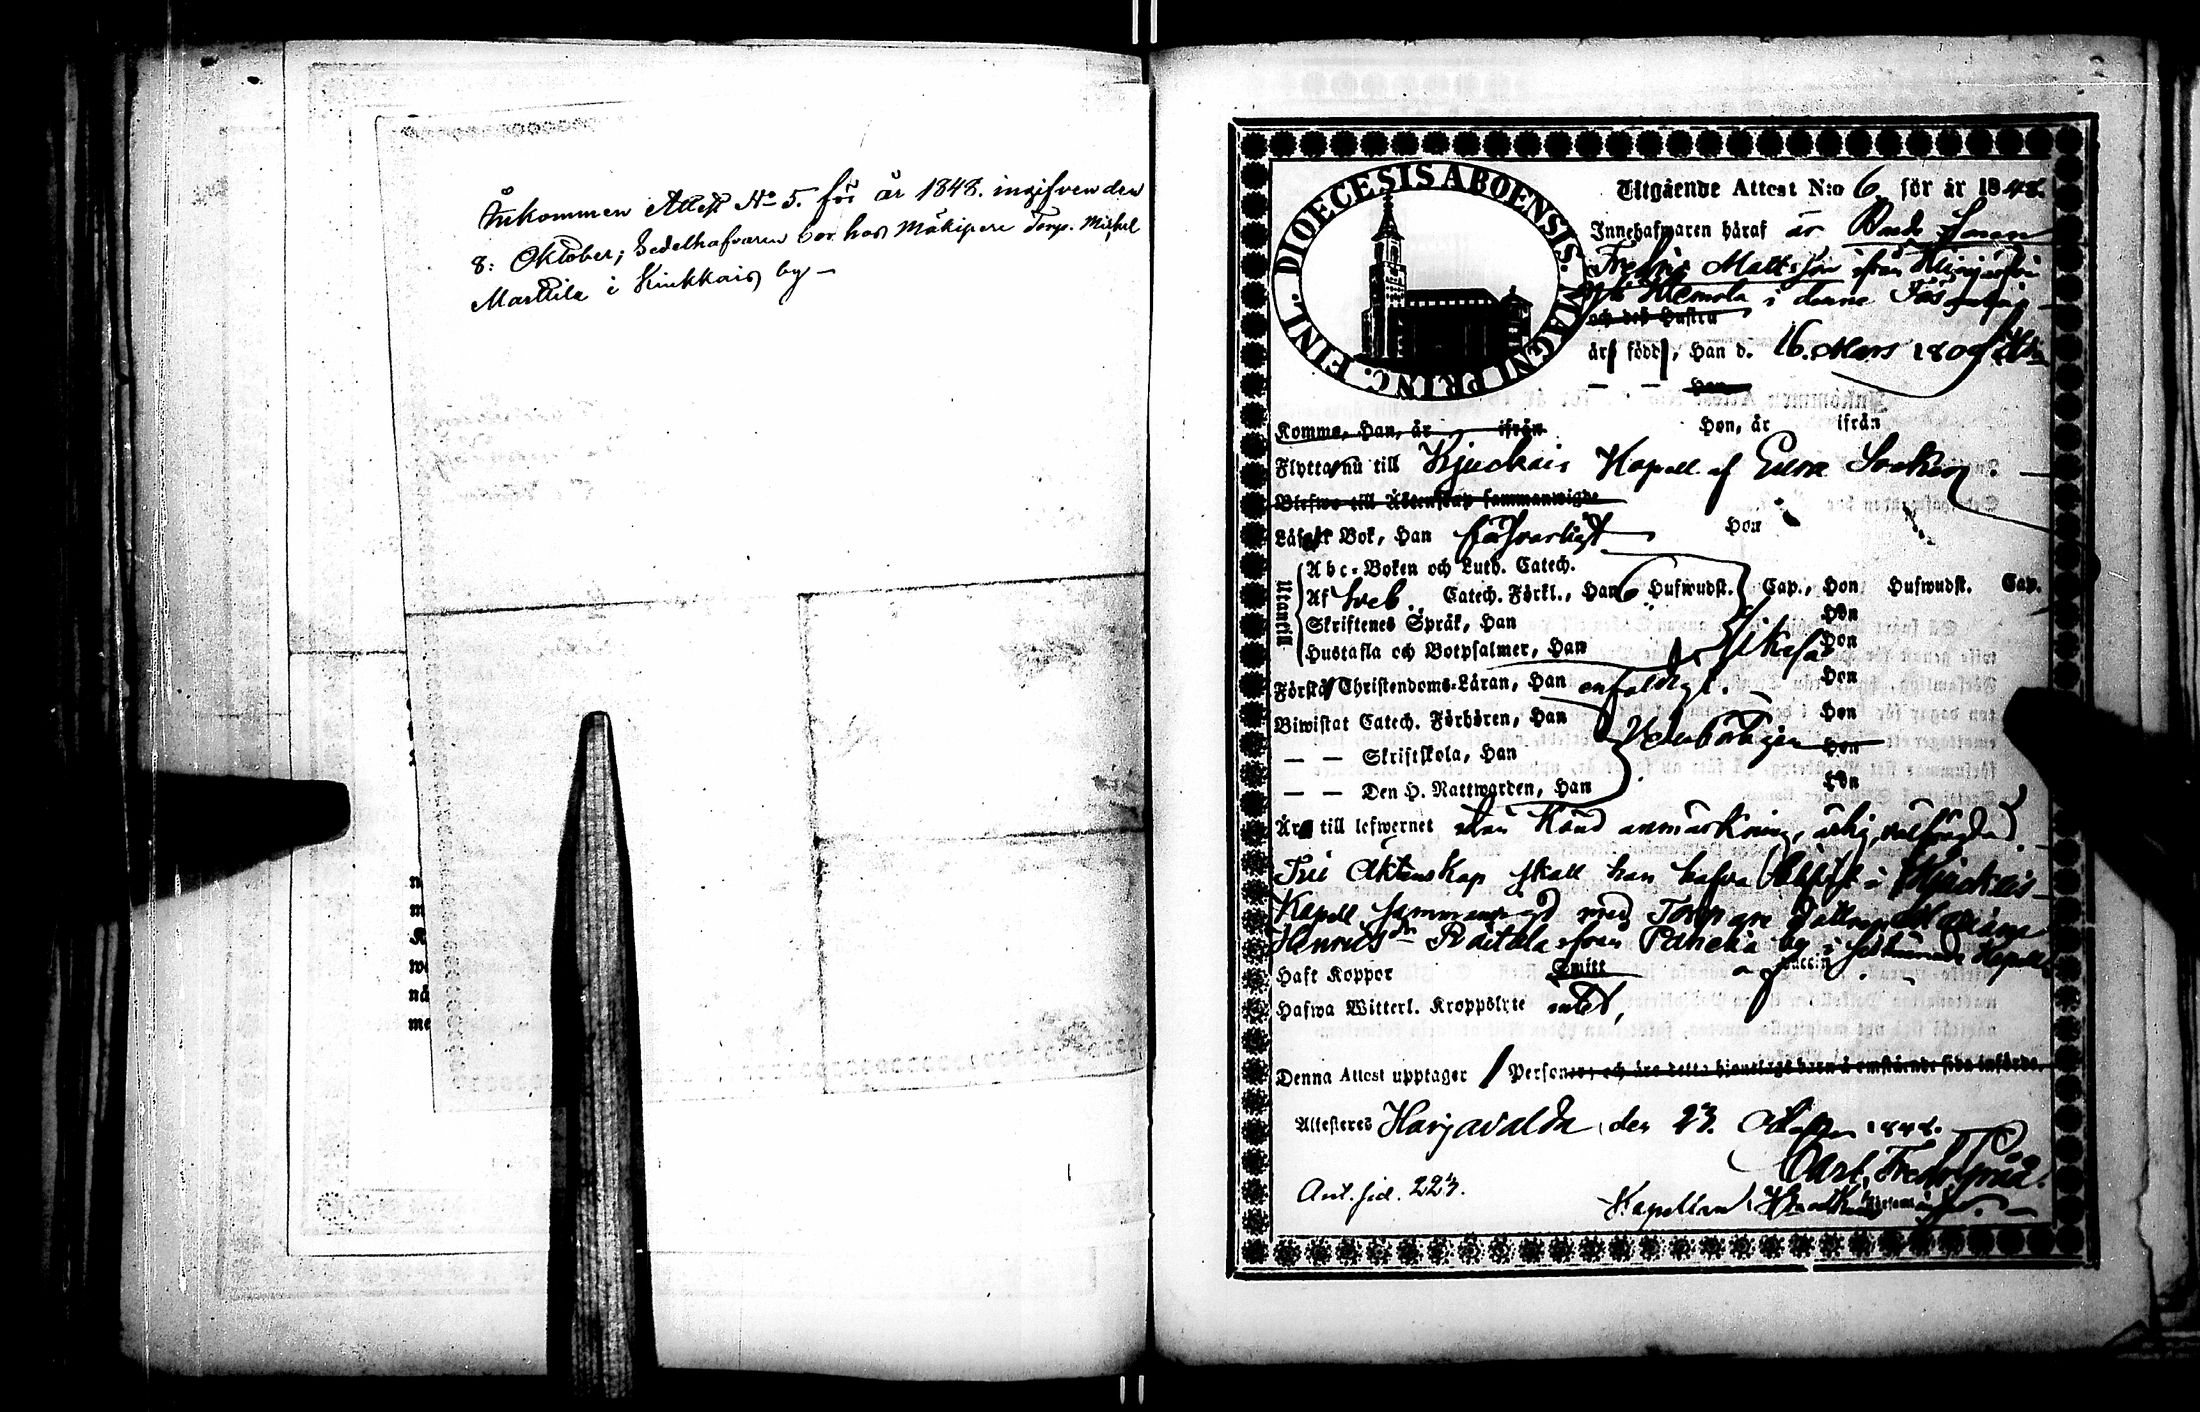 Ankommen Attest No 5. för år 1848. ingifven den
8: Oktober; Sedelhafvaren bor hos Mäkipere Torp. Michel
Marttila i Kiukkais by —
DIOECESIS ABOENSIS. MAGNI PRINC. FINL.
Utgående Attest N:o 6 för år 1848.
Innehafwaren häraf är
Fredric Mattsson ifrån
i denne Församling
och deß Hustru
är född, Han d. 16. Mars 180
— — Hon
Komme, Han, år ifrån Hon, år ifrån
Flytta nu till Kjuckais Kapell af Eura Socken.
Blefwo till Äktenskap sammanwigde
Läser i Bok, Han försvarligt Hon
Utantill
Abc-Boken och Luth. Catech.
Af Sveb. Catech. Förkl., Han 6 Hufwudst. Cap., Hon Hufwudst. Cap.
Skriftenes Språk, Han Hon
Hustafla och Botpsalmer, Han likaså Hon
Förstå Christendoms-Läran, Han enfaldigt. Hon
Biwistat Catech. Förhören, Han Hon
— — Skriftskola, Han Hon
— — Den H. Nattwarden, Han Hon
Är till lefwernet utan känd anmärkning, ärlig, välfrägdad.
Trei Äktenskap skall han hafva blifvit i Kjuckais
Kapell sammanvigd med Torpare dottren Maria
Henricsdr ifrån Panelia by i förbenämnde Kapell
Haft Koppor Smitt Vaccin
Hafwa Witterl. Kroppslyte intet,
Denna Attest upptager 1 Personer; och äro detta hjonelags barn å omstående sida införde.
Attesteras Harjavalda, den 23. 1848.
Carl Fredr.
Ant. sid. 223.
Kapellan